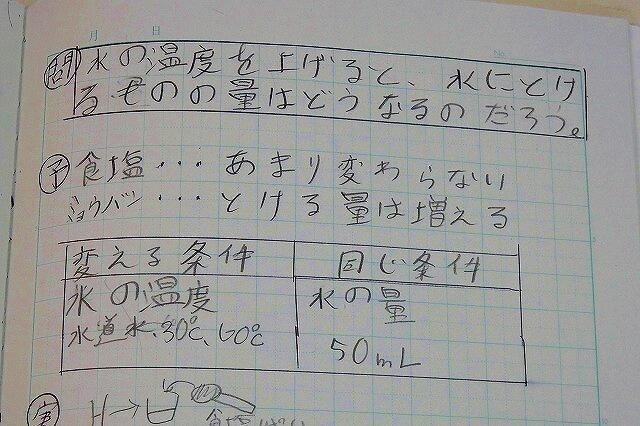 月 日 No.
問 水の温度を上げると、水にとけ
るものの量はどうなるのだろう。
予 食塩・・・あまり変わらない
ミョウバン・・・とける量は増える
変える条件 同じ条件
水の温度 水の量
水道水・30℃、60℃ 50mL
実 H→
食塩